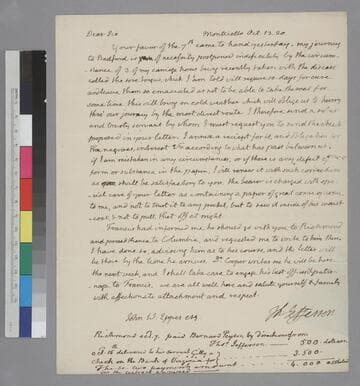 Dear Sir Monticello Oct. 13. 20
Your favor of the 7th came to hand yesterday. my journey
to Bedford is of necessity postponed indefinitely by the circum-
stance of 3 of my carriage horses being recently taken with the disease
called the sore tongue which I am told will require 20 days for cure
and leave them so emaciated as not to be able to take the road for
some time. this will bring on cold weather which will oblige us to hurry
thro our journey by the most direct route. I therefore send a sober
and trusty servant by whom I must request you to send the check
proposed in your letter. I inclose a receipt for it, and obligation for
the negroes, interest &c according to what has past between us.
if I am mistaken in any circumstance, or if there is any defect of
form or substance in the paper, I will renew it with such corrections
as shall be satisfactory to you. the bearer is charged with special
care of your letter as containing a paper of great consequence
to me, and not to trust it to any pocket, but to sew it inside of his waist-
coat, & not to pull that off at night.
Francis had informed me he should go with you to Richmond
and proceed thence to Columbia, and requested me to write to him there.
I have done so, advising him as to his course, and the letter will
be there by the time he arrives. Dr. Cooper writes me he will be here
the next week, and I shall take care to engage his best offices & patro-
nage to Francis. we are all well here and salute yourself & family
with affectionate attachment and respect.
Th: Jefferson
John W. Eppes esq.
Richmond Oct. 7. paid Bernard Peyton by direction from
Thos. Jefferson 500. dollars
Oct 15th delivered to his servant
check on the Bank of Virginia for 3.500.
The two payments amount 4.000 dollars